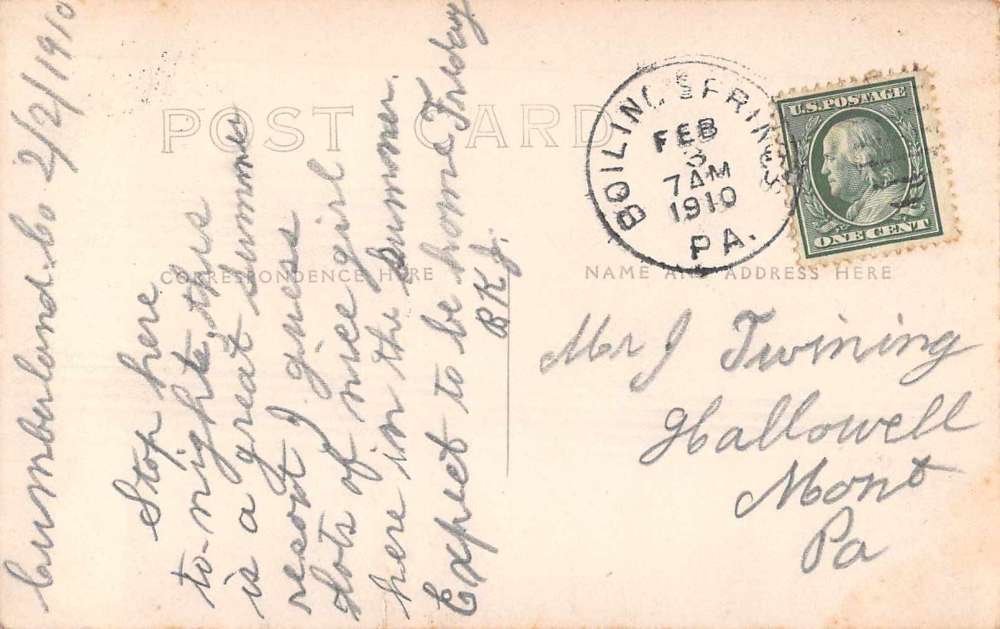 POST CARD
CORRESPONDENCE HERE
NAME AND ADDRESS HERE
BOILING SPRINGS
FEB
3
7 AM
1910
PA.
U.S. POSTAGE
ONE CENT
Cumberland. Co 2/2/1910
Stop here
to-night, this
is a great summer
resort I guess
lots of nice girl
here in the summer.
Expect to be home Friday
B K J.
Mr J Twining
Hallowell
Mont
Pa